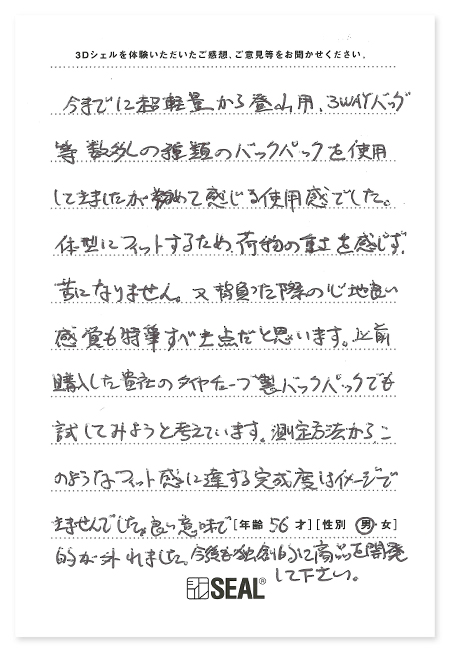 3Dシェルを体験いただいたご感想、ご意見等をお聞かせください。
今までに超軽量から登山用、3WAYバッグ
等数多しの種類のバックパックを使用
して来ましたが初めて感じる使用感でした。
体型にフィットするため、荷物の重さを感じず、
苦になりません。又背負った際の心地良い
感覚も特筆すべき点だと思います。以前
購入した貴社のタイヤチューブ製バックパックでも
試してみようと考えています。測定方法から、こ
のようなフィット感に達する完成度はイメージで
きませんでした。良い意味で [年齢 56 才] [性別 男・女]
的が外れました。今後も独創的に商品を開発
して下さい。
SEAL®